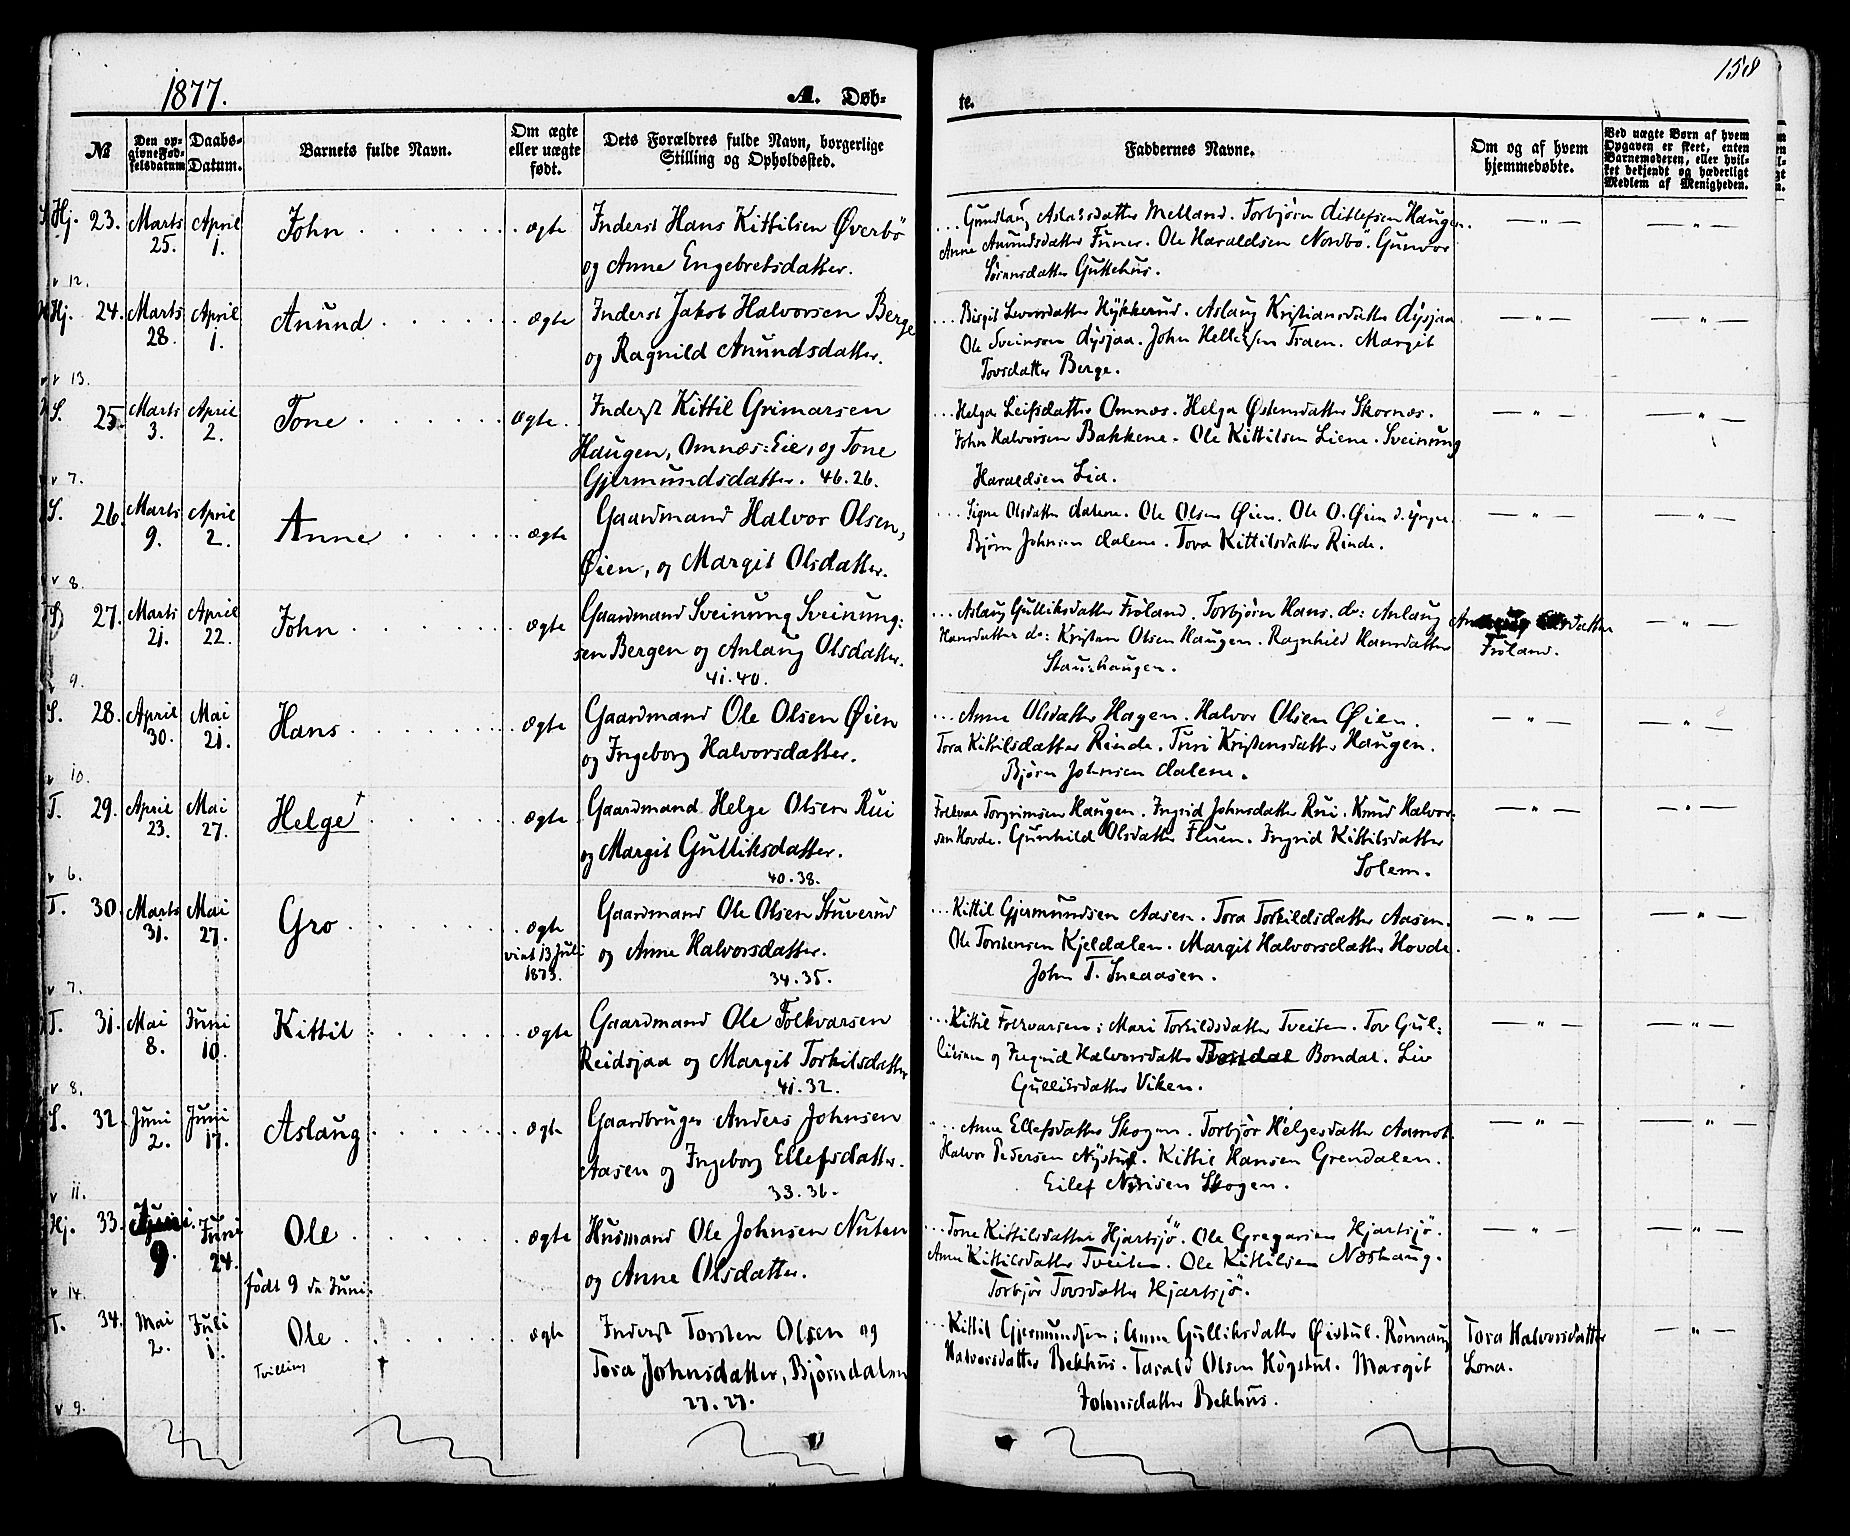 1877. A. Døb- te. 158
№ Den op-givne Fød-selsdatum Daabs-Datum. Barnets fulde Navn. Om ægte eller uægte født. Dets Forældres fulde Navn, borgerlige Stilling og Opholdssted. Faddernes Navne. Om og af hvem hjemmedøbte. Ved uægte Børn af hvem Opgaven er skeet, enten Barnemoderen, eller hvil-ket bekjendt og hæderligt Medlem af Menigheden.
Hj. 23. Marts April John ægte Inderst Hans Kittilsen Øverbö Gunslaug Aslaksdatter Melland. Torbjörn Ditlefsen Haugen. — " —
25. 1. og Anne Engebretsdatter. Anne Anundsdatter Funer. Ole Haraldsen Nordbö. Gunvor
v 12. Sörensdatter Guttehus.
Hj. 24. Marts April Anund ægte Inderst Jakob Halvorsen Berge Birgit Levorsdatter Hykkerud. Aslaug Kristiansdatter Dysjaa — " —
28. 1. og Ragnild Anundsdatter. Ole Sveinson Dysjaa. John Hellejsen Traen. Margit
v 13. Tovsdatter Berge.
S. 25. Marts April Tone ægte Inderst Kittil Grimarsen Helga Leifsdatter Omnæs. Helga Østensdatter Skornæs. — " —
3. 2. Haugen, Omnæs:Eie, og Tone John Halvorsen Bakkene. Ole Kittilsen Liene. Sveinung
v 7. Gjermundsdatter. 46.26. Haraldsen Lia.
S. 26. Marts April Anne ægte Gaardmand Halvor Olsen, Signe Olsdatter Dalene. Ole Olsen Øien. Ole O. Øien d. yngre. — " —
9. 2. Øien, og Margit Olsdatter. Björn Johnsen Dalene. Tora Kittilsdatter Rinde.
v 8.
S. 27. Marts April John ægte Gaardmand Sveinung Sveinung: Aslaug Gulliksdatter Fröland. Torbjörn Hans. do: Anlaug — " —
21. 22. sen Bergen og Anlaug Olsdatter. Hansdatter do: Kristen Olsen Haugen. Ragnhild Hansdatter Fröland.
v 9. 41.40. Staurhaugen.
S. 28. April Mai Hans ægte Gaardmand Ole Olsen Øien Anne Olsdatter Hagen. Halvor Olsen Øien. — " —
30. 21. og Ingeborg Halvorsdatter. Tora Kittilsdatter Rinde. Turi Kristensdatter Haugen.
v 10. Björn Johnsen Dalene.
T. 29. April Mai Helge † ægte Gaardmand Helge Olsen Rui Folkvar Torgrimsen Haugen. Ingrid Johnsdatter Rui. Knud Halvor: — " —
23. 27. og Margit Gulliksdatter. sen Hovde. Gunhild Olsdatter Fluen. Ingrid Kittilsdatter
v 6. 40.38. Solem.
T. 30. Marts Mai Gro ægte Gaardmand Ole Olsen Stuverud Kittil Gjermundsen Aasen. Tora Torkildsdatter Aasen. — " —
31. 27. viet 13 Juli og Anne Halvorsdatter. Ole Torstensen Kjeldalen. Margit Halvorsdatter Hovde.
v 7. 1873. 34.35. John T. Sneaasen.
T. 31. Mai Juni Kittil ægte Gaardmand Ole Folkvarsen Kittil Folkvarsen; Mari Torkildsdatter Tveiten. Tov Gul: — " —
8. 10. Reidsjaa og Margit Torkilsdatter liksen og Ingrid Halvorsdatter Bondal. Liv
v 8. 41.32. Gulliksdatter Viken.
S. 32. Juni Juni Aslaug ægte Gaardbruger Anders Johnsen Anne Ellefsdatter Skogen. Torbjör Helgesdatter Aamot. — " —
2. 17. Aasen og Ingeborg Ellefsdatter. Halvor Pedersen Nystul. Kittil Hansen Grendalen.
v 11. 33.36. Eilef Nirisen Skogen.
Hj. 33. Juni Juni Ole ægte Husmand Ole Johnsen Nuten Tone Kittilsdatter Hjartsjö. Ole Gregarsen Hjartsjö. — " —
9. 24. og Anne Olsdatter. Anne Kittilsdatter Tveiten. Ole Kittilsen Næshaug.
v 14. født 9 de Juni. Torbjör Tovsdatter Hjartsjö.
T. 34. Mai Juli Ole ægte Inderst Torsten Olsen og Kittil Gjermundsen; Anne Gulliksdatter Øistul. Rönnaug Tora Halvorsdatter — " —
2. 1. Tvilling † Tora Johnsdatter, Björndalen Halvorsdatter Bekhus. Tarald Olsen Högstul. Margit Lona.
v 9. 27.27. Johnsdatter Bekhus.